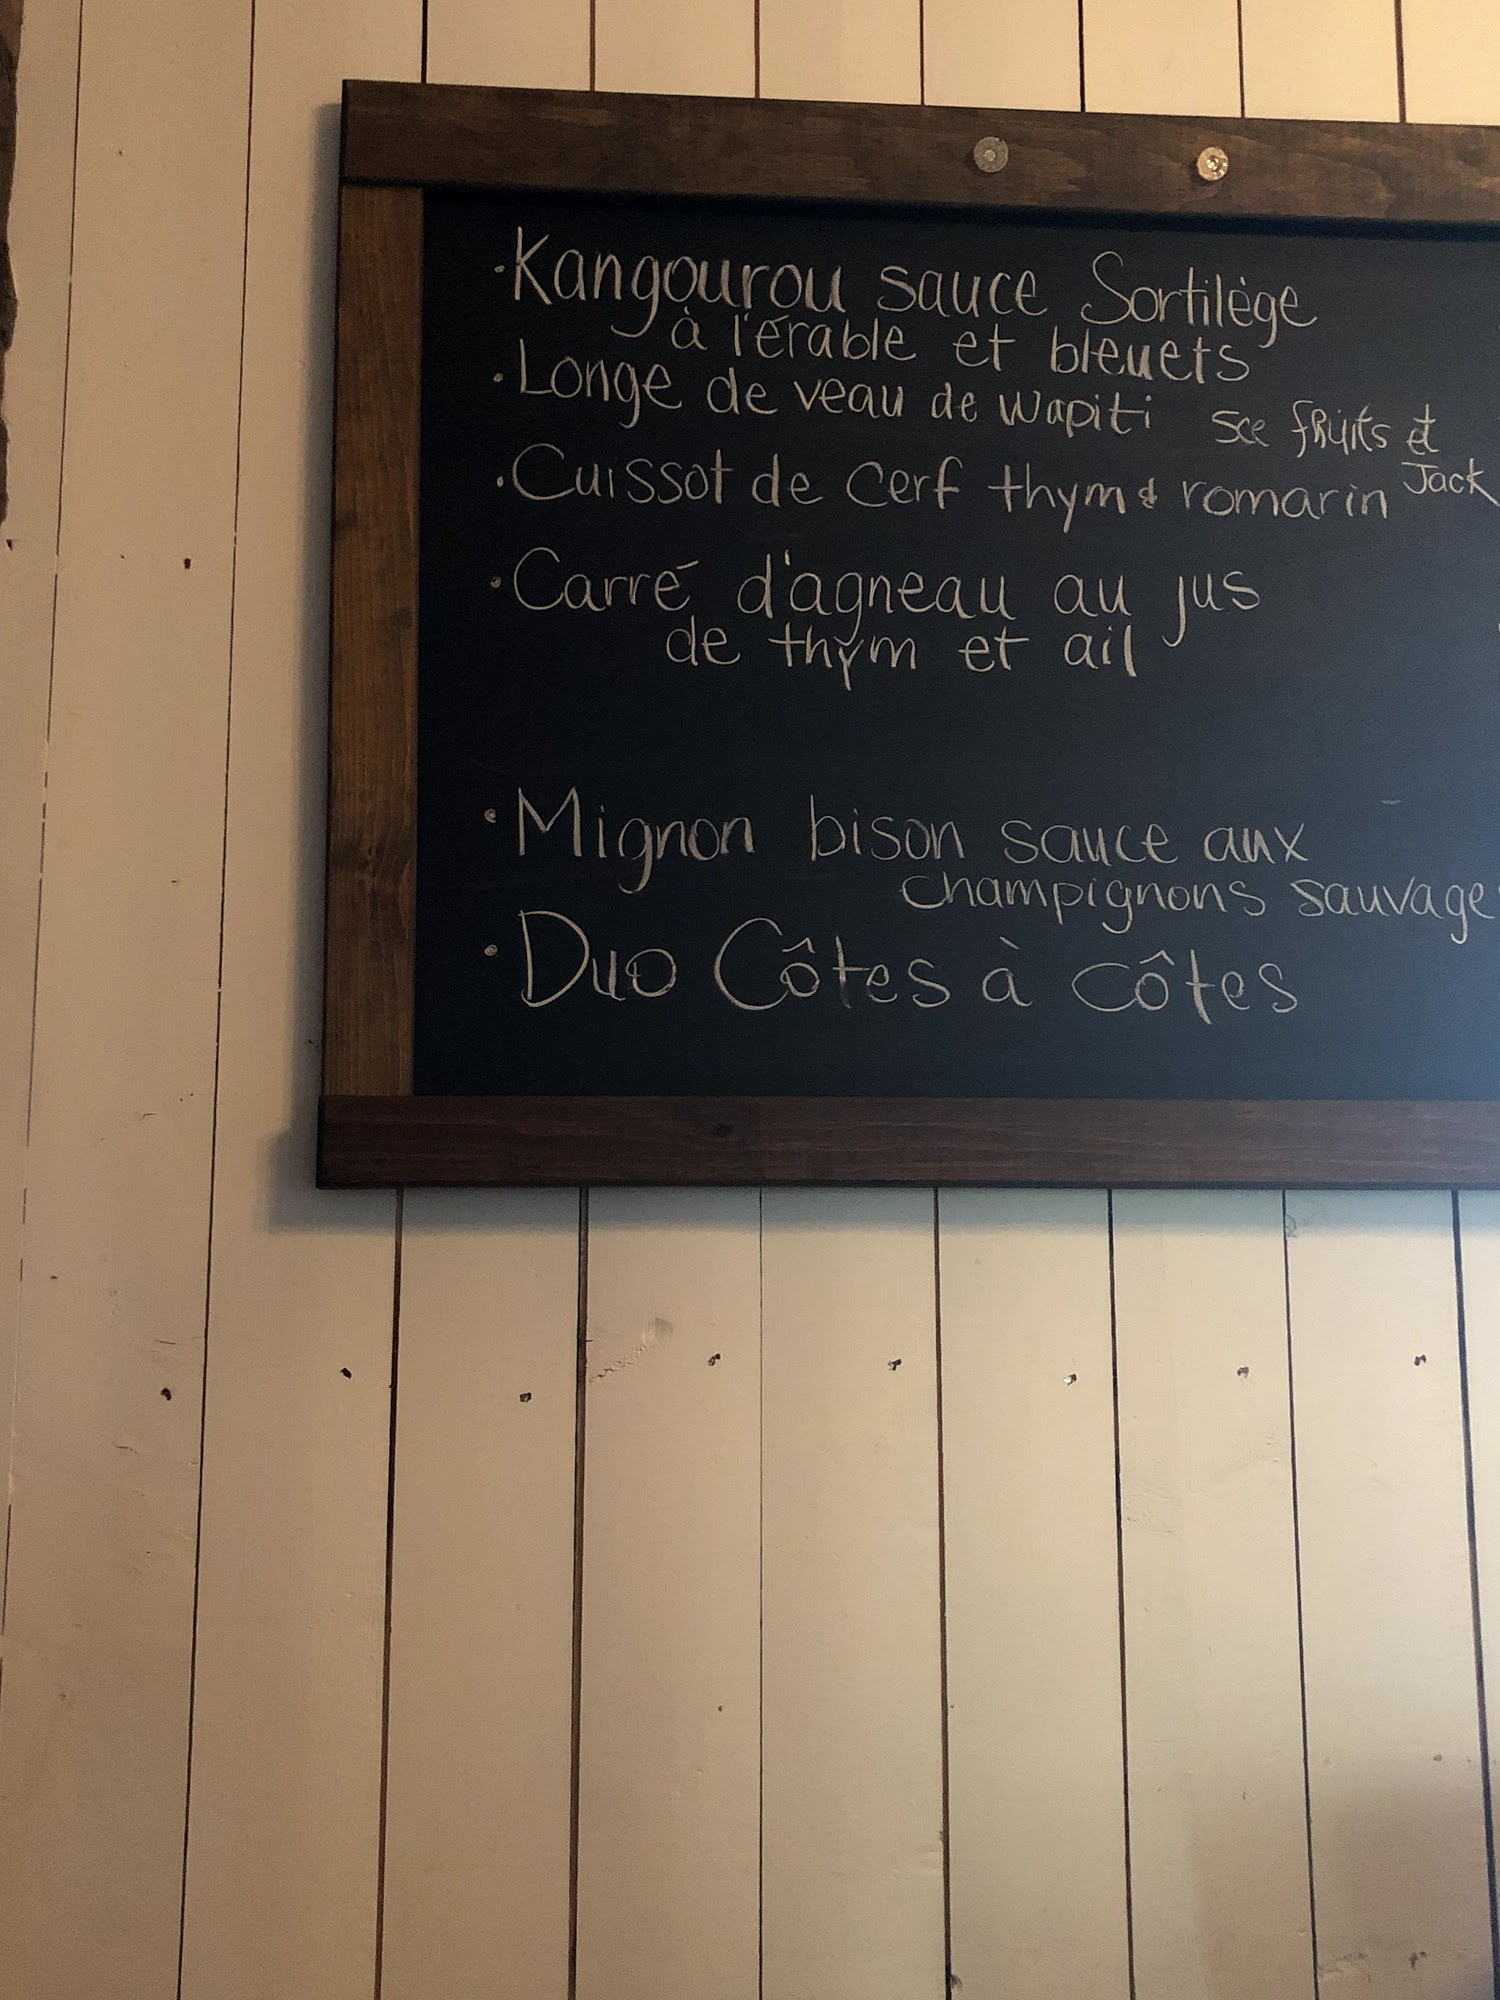 · Kangourou sauce Sortilège
à l'érable et bleuets
· Longe de veau de wapiti sce fruits et
Jack
· Cuissot de cerf thym & romarin
· Carré d'agneau au jus
de thym et ail
· Mignon bison sauce aux
champignons sauvages
· Duo Côtes à côtes